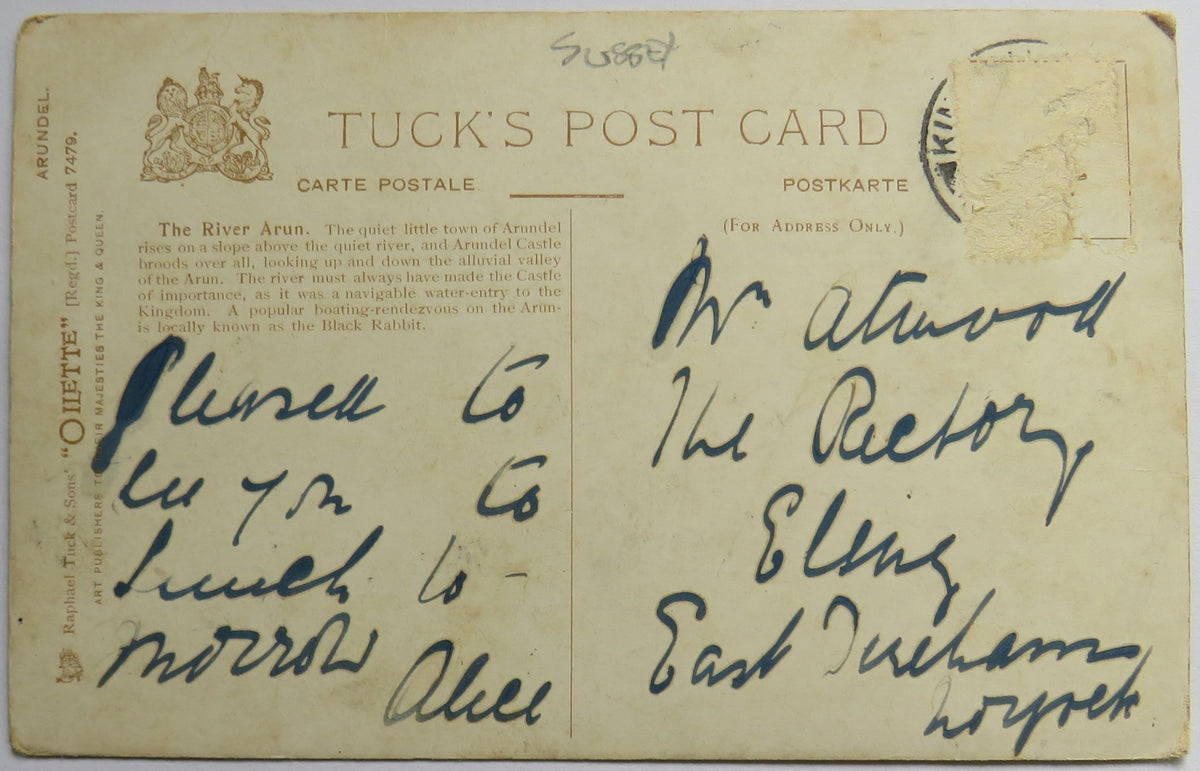 Sussex
TUCK'S POST CARD
CARTE POSTALE
POSTKARTE
(FOR ADDRESS ONLY.)
KIN
ARUNDEL.
Raphael Tuck & Sons' "OILETTE" [Regd.] Postcard 7479.
ART PUBLISHERS TO THEIR MAJESTIES THE KING & QUEEN.
The River Arun. The quiet little town of Arundel
rises on a slope above the quiet river, and Arundel Castle
broods over all, looking up and down the alluvial valley
of the Arun. The river must always have made the Castle
of importance, as it was a navigable water-entry to the
Kingdom. A popular boating-rendezvous on the Arun-
is locally known as the Black Rabbit.
Pleased to
see you to
lunch to-
morrow
Alice
Mrs Attwood
The Rectory
Elsing
East Dereham
Norfolk